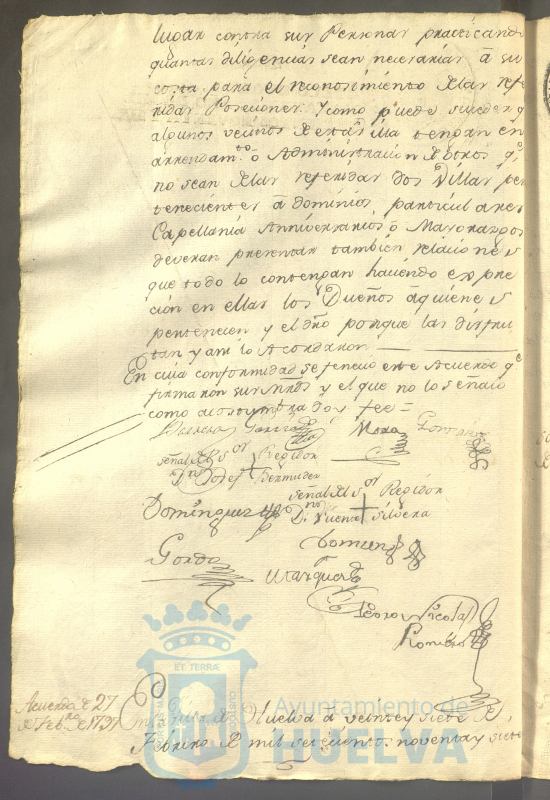 lugar contra sus Personas practicando
quantas diligencias sean necesarias â su
costa para el reconosimiento de las refe
ridas Posesiones. Y como puede suceder q
algunos vecinos de esta Villa tengan en
arrendam.to ô Administracion de otros q.e
no sean de las referidas dos Villas per
tenecientes â dominios particulares
Capellania Anniversarios ô Mayorazgos
deveran presentar tambien relaciones
que todo lo contengan haciendo expre
ción en ellas los Dueños âquienes
pertenecen y el dro porque las disfru
tan y asi lo Acordaron
En cuia conformidad se feneció este Acuerdo q.e
firmaron sus Mrds y el que no lo señaló
como acostumbra doy fee =
Garcia
Mora
señal del S.or Regidor
D.n Josef Bermudez
señal del S.or Regidor
Dominguez
D.n Vicente Silvera
Gordo
Marquez
Pedro Nicolas
Romero
Acuerdo de 27
de Feb.ro de 1797
En la Villa de Huelva â veinte y siete de
Febrero de mil setecientos noventa y siete
ET TERRÆ
Ayuntamiento de
HUELVA